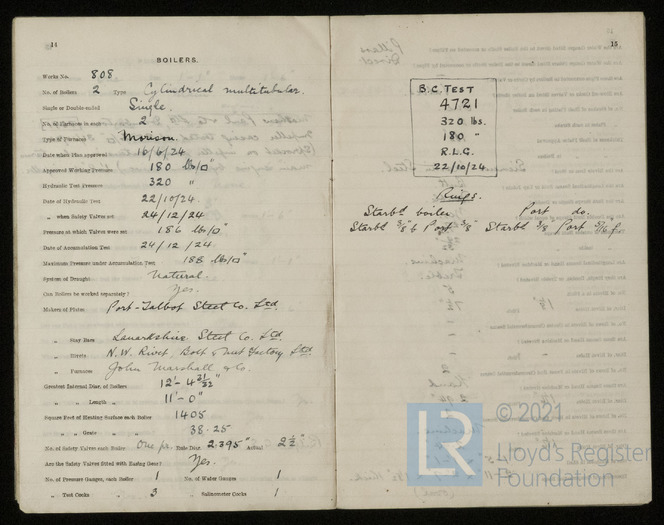 14
BOILERS.
Works No. 808
No. of Boilers 2 Type Cylindrical multitubular.
Single or Double-ended Single.
No. of Furnaces in each 2
Type of Furnaces Morison
Date when Plan approved 16/6/24
Approved Working Pressure 180 lb/□"
Hydraulic Test Pressure 320 "
Date of Hydraulic Test 22/10/24.
" when Safety Valves set 24/12/24
Pressure at which Valves were set 186 lb/□"
Date of Accumulation Test 24/12/24.
Maximum Pressure under Accumulation Test 188 lb/□"
System of Draught Natural.
Can Boilers be worked separately? Yes.
Makers of Plates Port-Talbot Steel Co. Ltd.
" Stay Bars Lanarkshire Steel Co. Ltd.
" Rivets N.W. Rivet, Bolt & Nut Factory Ltd.
" Furnaces John Marshall & Co.
Greatest Internal Diam. of Boilers 12'-4 21/32"
" " Length " 11'-0"
Square Feet of Heating Surface each Boiler 1405
" " Grate " " 38.25
No. of Safety Valves each Boiler One pr. Rule Diam. 2.395" Actual 2½"
Are the Safety Valves fitted with Easing Gear? Yes.
No. of Pressure Gauges, each Boiler 1 No. of Water Gauges 1
" Test Cocks " 3 " Salinometer Cocks 1
15
B.C. TEST
4721
320 lbs.
180 "
R.L.G.
22/10/24
Starbd boiler Port do.
Starbd 3/8" Port 3/8" Starbd 3/8 Port 5/16
© 2021
LR
Lloyd's Register
Foundation